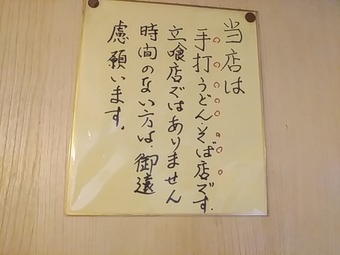 当店は
手打うどん・そば店です。
立喰店ではありません
時間のない方は、御遠
慮願います。